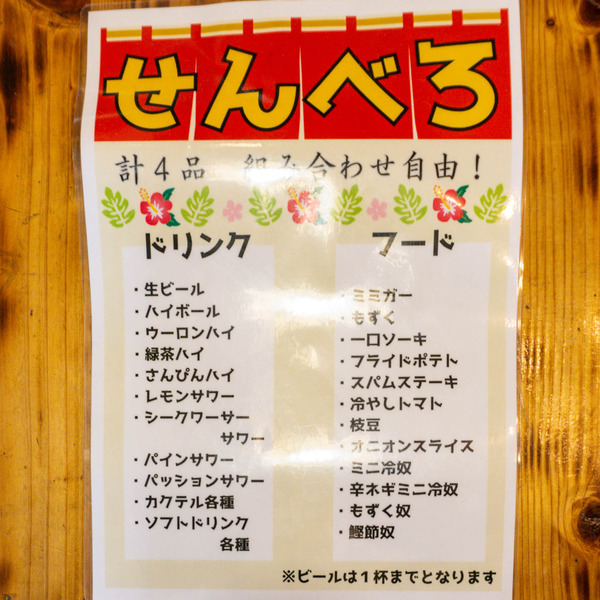 せんべろ
計4品　組み合わせ自由！
ドリンク
・生ビール
・ハイボール
・ウーロンハイ
・緑茶ハイ
・さんぴんハイ
・レモンサワー
・シークワーサー
サワー
・パインサワー
・パッションサワー
・カクテル各種
・ソフトドリンク
各種
フード
・ミミガー
・もずく
・一口ソーキ
・フライドポテト
・スパムステーキ
・冷やしトマト
・枝豆
・オニオンスライス
・ミニ冷奴
・辛ネギミニ冷奴
・もずく奴
・鰹節奴
※ビールは１杯までとなります